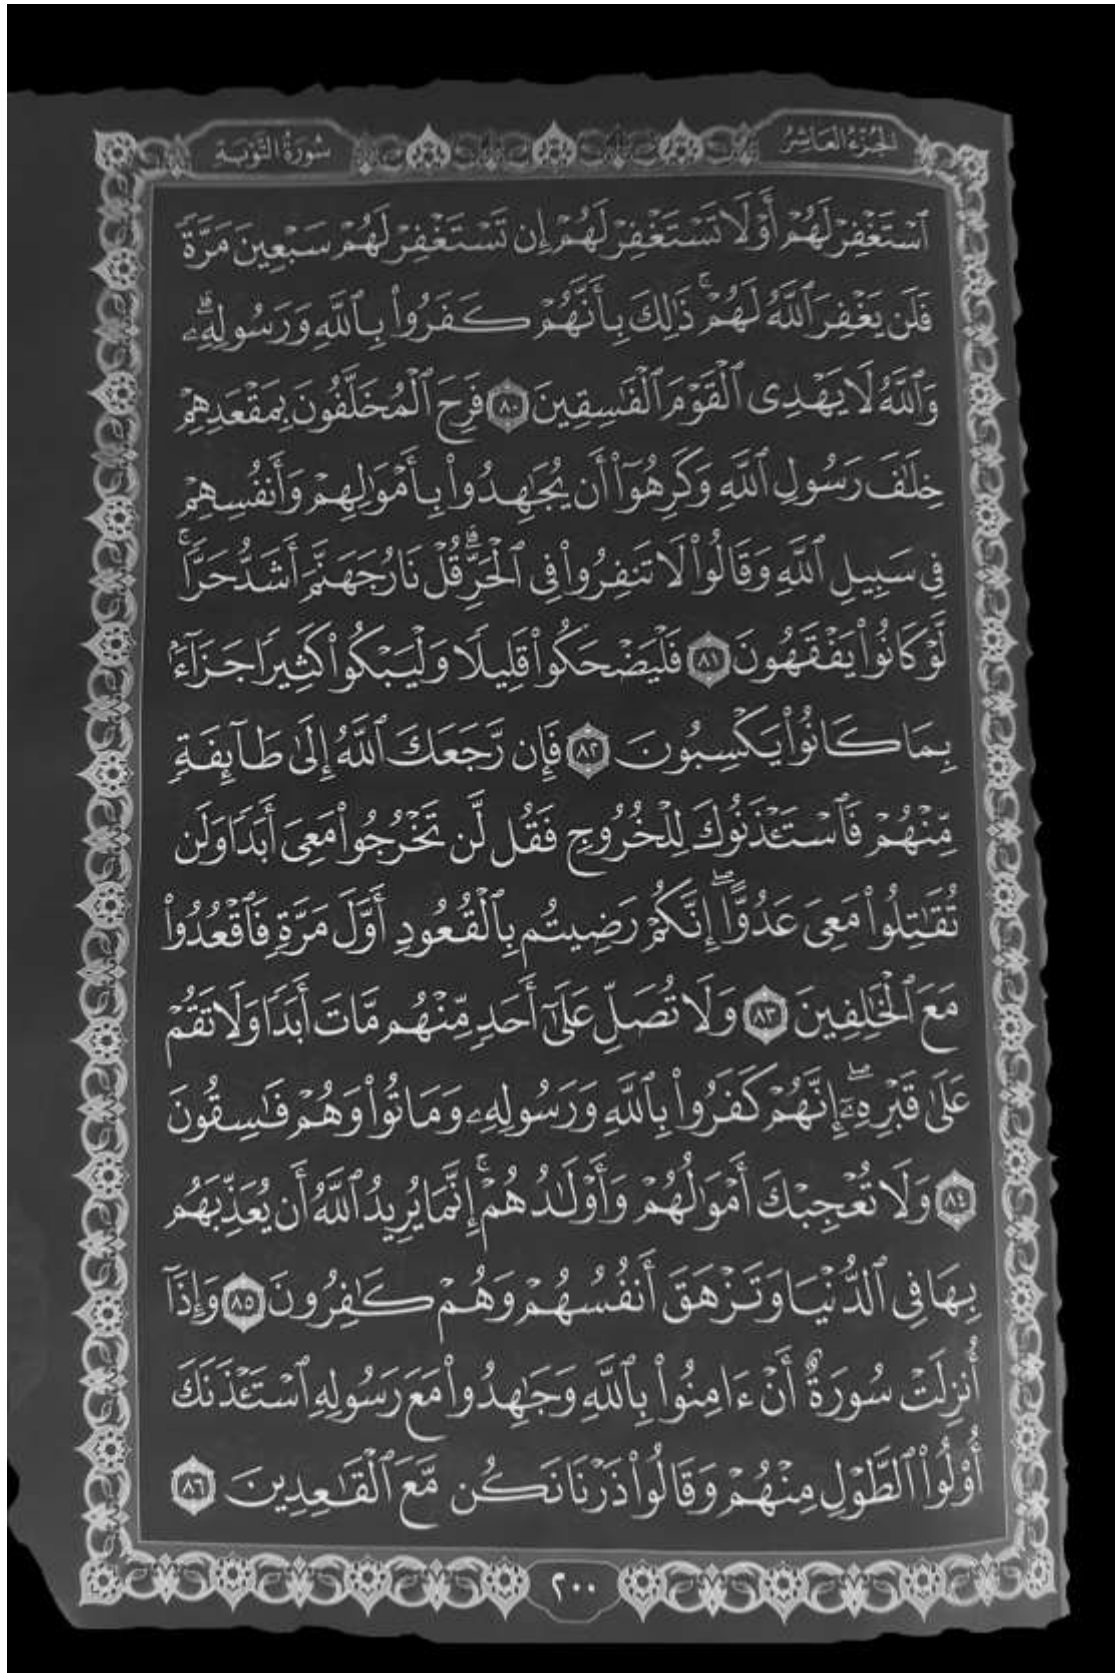 الجزء العاشر
سورة التوبة
ٱسْتَغْفِرْ لَهُمْ أَوْ لَا تَسْتَغْفِرْ لَهُمْ إِن تَسْتَغْفِرْ لَهُمْ سَبْعِينَ مَرَّةً
فَلَن يَغْفِرَ ٱللَّهُ لَهُمْ ۚ ذَٰلِكَ بِأَنَّهُمْ كَفَرُوا۟ بِٱللَّهِ وَرَسُولِهِۦ ۗ
وَٱللَّهُ لَا يَهْدِى ٱلْقَوْمَ ٱلْفَٰسِقِينَ ٨٠ فَرِحَ ٱلْمُخَلَّفُونَ بِمَقْعَدِهِمْ
خِلَٰفَ رَسُولِ ٱللَّهِ وَكَرِهُوٓا۟ أَن يُجَٰهِدُوا۟ بِأَمْوَٰلِهِمْ وَأَنفُسِهِمْ
فِى سَبِيلِ ٱللَّهِ وَقَالُوا۟ لَا تَنفِرُوا۟ فِى ٱلْحَرِّ ۗ قُلْ نَارُ جَهَنَّمَ أَشَدُّ حَرًّا ۚ
لَّوْ كَانُوا۟ يَفْقَهُونَ ٨١ فَلْيَضْحَكُوا۟ قَلِيلًا وَلْيَبْكُوا۟ كَثِيرًا جَزَآءًۢ
بِمَا كَانُوا۟ يَكْسِبُونَ ٨٢ فَإِن رَّجَعَكَ ٱللَّهُ إِلَىٰ طَآئِفَةٍ
مِّنْهُمْ فَٱسْتَـْٔذَنُوكَ لِلْخُرُوجِ فَقُل لَّن تَخْرُجُوا۟ مَعِىَ أَبَدًا وَلَن
تُقَٰتِلُوا۟ مَعِىَ عَدُوًّا ۖ إِنَّكُمْ رَضِيتُم بِٱلْقُعُودِ أَوَّلَ مَرَّةٍ فَٱقْعُدُوا۟
مَعَ ٱلْخَٰلِفِينَ ٨٣ وَلَا تُصَلِّ عَلَىٰٓ أَحَدٍ مِّنْهُم مَّاتَ أَبَدًا وَلَا تَقُمْ
عَلَىٰ قَبْرِهِۦٓ ۖ إِنَّهُمْ كَفَرُوا۟ بِٱللَّهِ وَرَسُولِهِۦ وَمَاتُوا۟ وَهُمْ فَٰسِقُونَ
٨٤ وَلَا تُعْجِبْكَ أَمْوَٰلُهُمْ وَأَوْلَٰدُهُمْ ۚ إِنَّمَا يُرِيدُ ٱللَّهُ أَن يُعَذِّبَهُم
بِهَا فِى ٱلدُّنْيَا وَتَزْهَقَ أَنفُسُهُمْ وَهُمْ كَٰفِرُونَ ٨٥ وَإِذَآ
أُنزِلَتْ سُورَةٌ أَنْ ءَامِنُوا۟ بِٱللَّهِ وَجَٰهِدُوا۟ مَعَ رَسُولِهِ ٱسْتَـْٔذَنَكَ
أُو۟لُوا۟ ٱلطَّوْلِ مِنْهُمْ وَقَالُوا۟ ذَرْنَا نَكُن مَّعَ ٱلْقَٰعِدِينَ ٨٦
٢٠٠